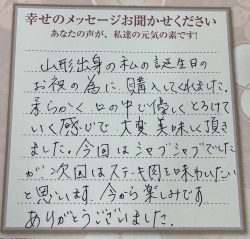 幸せのメッセージお聞かせください
あなたの声が、私達の元気の素です!
山形出身の私の誕生日の
お祝の為に、購入してくれました。
柔らかく、口の中で優しくとろけて
いく感じで、大変美味しく頂き
ました。今回はシャブシャブでした
が、次回はステーキ肉を味わいたい
と思います。今から楽しみです。
ありがとうございました。